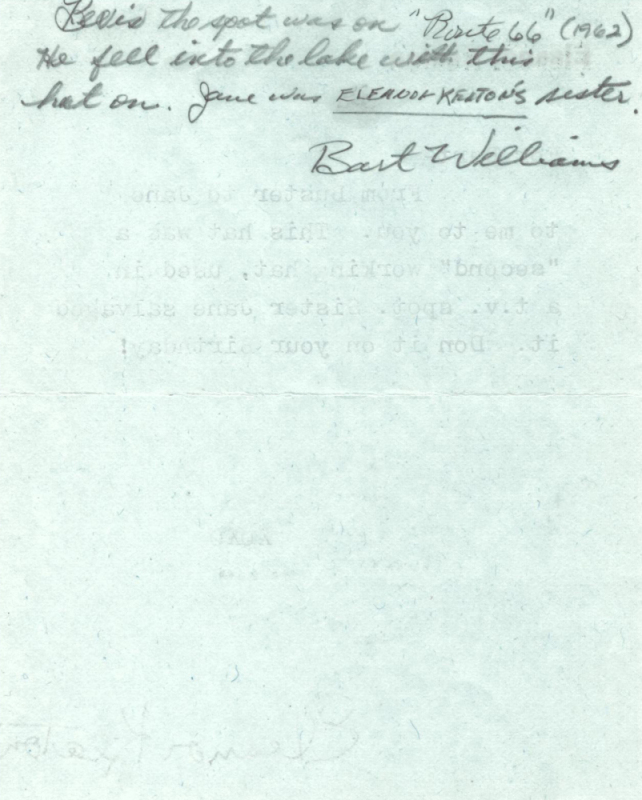 the spot was on "Route 66" (1962)
He fell into the lake with this
hat on. Jane was ELEANOR KEATON'S sister.
Bart Williams
From Buster to Jane
to me to you. This hat was a
"second" working hat, used in
a t.v. spot. Sister Jane salvaged
it. Don it on your Birthday!
Eleanor Keaton